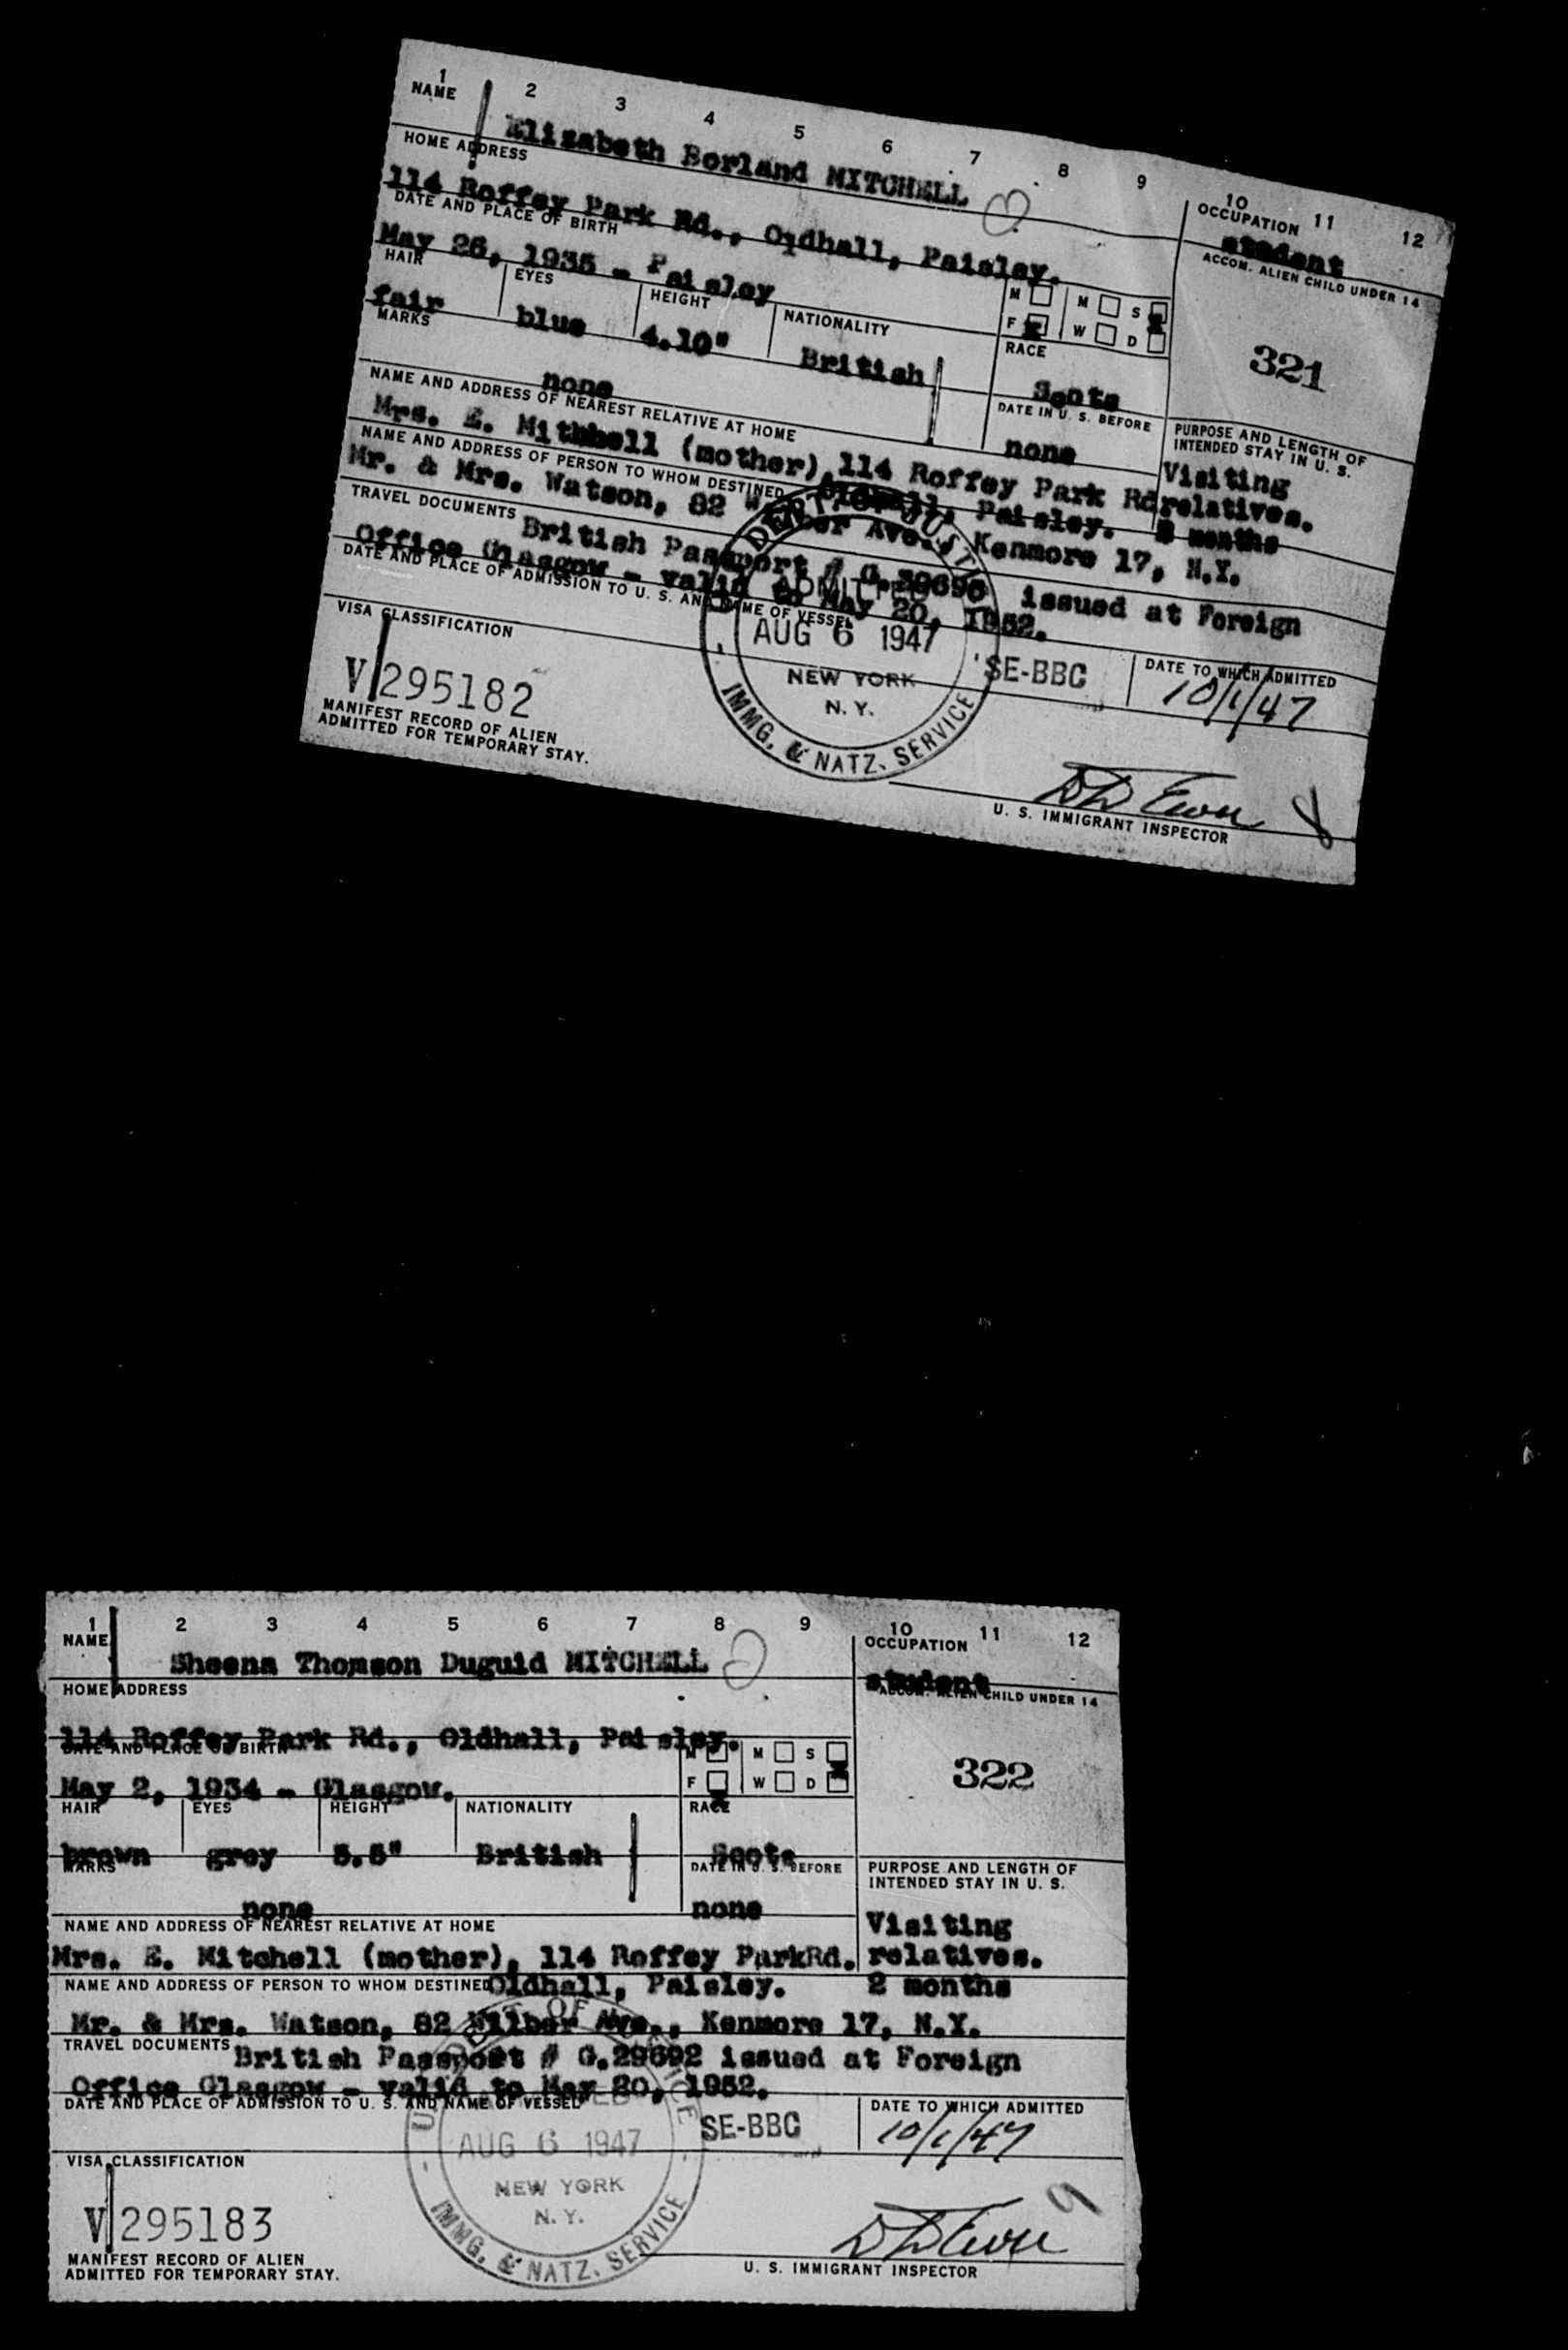 1 2 3 4 5 6 7 8 9 10 11 12
NAME Elizabeth Borland MITCHELL OCCUPATION
student
HOME ADDRESS ACCOM. ALIEN CHILD UNDER 14
114 Roffey Park Rd., Oldhall, Paisley.
DATE AND PLACE OF BIRTH M M S
May 26, 1935 - Paisley F W D
321
HAIR EYES HEIGHT NATIONALITY RACE
fair blue 4.10" British Scots
MARKS DATE IN U. S. BEFORE PURPOSE AND LENGTH OF
INTENDED STAY IN U. S.
none none Visiting
NAME AND ADDRESS OF NEAREST RELATIVE AT HOME
Mrs. E. (mother), 114 Roffey Park Rd relatives.
NAME AND ADDRESS OF PERSON TO WHOM DESTINED Oldhall, Paisley. 2 months
Mr. & Mrs. Watson, 82 Ave., Kenmore 17, N.Y.
TRAVEL DOCUMENTS British Passport # issued at Foreign
Office Glasgow - valid to May 20, 1952.
DATE AND PLACE OF ADMISSION TO U. S. AND NAME OF VESSEL
ADMITTED
AUG 6 1947
NEW YORK
N. Y.
IMMG. & NATZ. SERVICE
SE-BBC
DATE TO WHICH ADMITTED
10/1/47
VISA CLASSIFICATION
V 295182
MANIFEST RECORD OF ALIEN
ADMITTED FOR TEMPORARY STAY.
U. S. IMMIGRANT INSPECTOR
1 2 3 4 5 6 7 8 9 10 11 12
NAME Sheena Thomson Duguid MITCHELL OCCUPATION
student
HOME ADDRESS ACCOM. ALIEN CHILD UNDER 14
114 Roffey Park Rd., Oldhall, Paisley.
DATE AND PLACE OF BIRTH M M S
May 2, 1934 - Glasgow. F W D
322
HAIR EYES HEIGHT NATIONALITY RACE
brown grey 5.5" British Scots
MARKS DATE IN U. S. BEFORE PURPOSE AND LENGTH OF
INTENDED STAY IN U. S.
none none Visiting
NAME AND ADDRESS OF NEAREST RELATIVE AT HOME
Mrs. E. Mitchell (mother), 114 Roffey ParkRd. relatives.
NAME AND ADDRESS OF PERSON TO WHOM DESTINED Oldhall, Paisley. 2 months
Mr. & Mrs. Watson, 82 Wilber Ave., Kenmore 17, N.Y.
TRAVEL DOCUMENTS British Passport # G.29692 issued at Foreign
Office Glasgow - valid to May 20, 1952.
DATE AND PLACE OF ADMISSION TO U. S. AND NAME OF VESSEL
AUG 6 1947
NEW YORK
N. Y.
IMMG. & NATZ. SERVICE
SE-BBC
DATE TO WHICH ADMITTED
10/1/47
VISA CLASSIFICATION
V 295183
MANIFEST RECORD OF ALIEN
ADMITTED FOR TEMPORARY STAY.
U. S. IMMIGRANT INSPECTOR